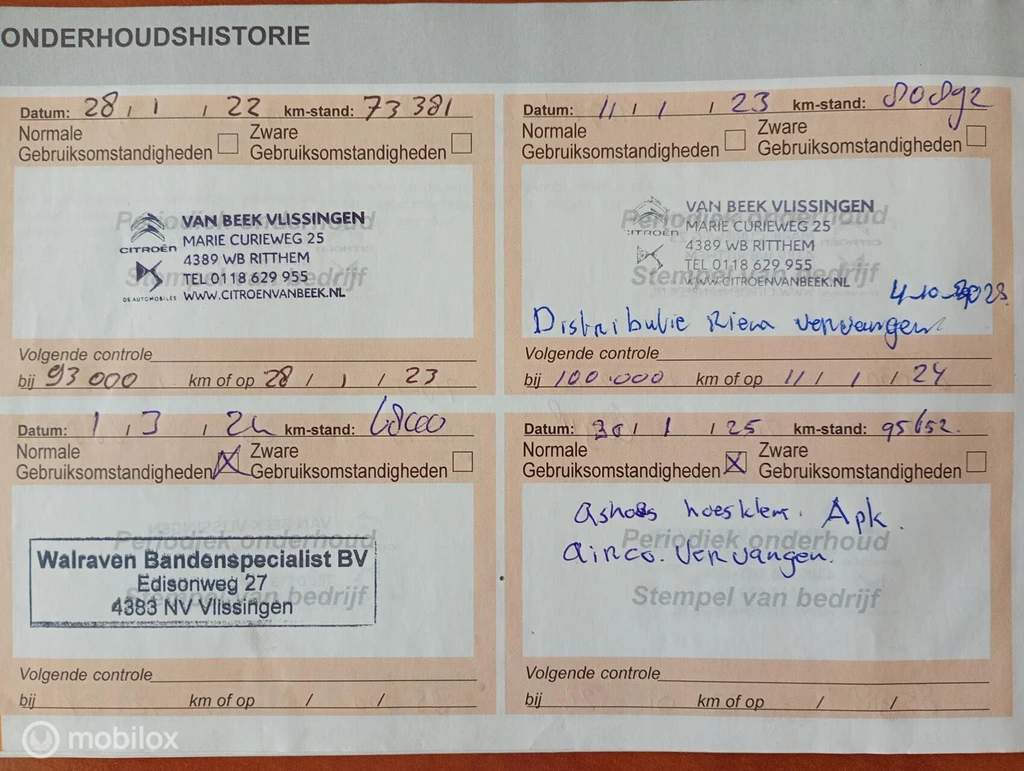 ONDERHOUDSHISTORIE
Datum: 28 / 1 / 22 km-stand: 73 381
Normale Gebruiksomstandigheden Zware Gebruiksomstandigheden
Periodiek onderhoud
Stempel van bedrijf
VAN BEEK VLISSINGEN
MARIE CURIEWEG 25
CITROËN
4389 WB RITTHEM
TEL 0118 629 955
DS AUTOMOBILES WWW.CITROENVANBEEK.NL
Volgende controle
bij 93 000 km of op 28 / 1 / 23
Datum: 11 / 1 / 23 km-stand: 80892
Normale Gebruiksomstandigheden Zware Gebruiksomstandigheden
Periodiek onderhoud
Stempel van bedrijf
VAN BEEK VLISSINGEN
MARIE CURIEWEG 25
CITROËN
4389 WB RITTHEM
TEL 0118 629 955
WWW.CITROENVANBEEK.NL
4-10-2023
Distributie Riem vervangen
Volgende controle
bij 100.000 km of op 11 / 1 / 24
Datum: 1 / 3 / 24 km-stand:
Normale Gebruiksomstandigheden Zware Gebruiksomstandigheden
Periodiek onderhoud
Stempel van bedrijf
Walraven Bandenspecialist BV
Edisonweg 27
4383 NV Vlissingen
Volgende controle
bij km of op / /
Datum: 30 / 1 / 25 km-stand: 95652.
Normale Gebruiksomstandigheden Zware Gebruiksomstandigheden
Periodiek onderhoud
Stempel van bedrijf
Apk.
airco. Vervangen.
Volgende controle
bij km of op / /
mobilox